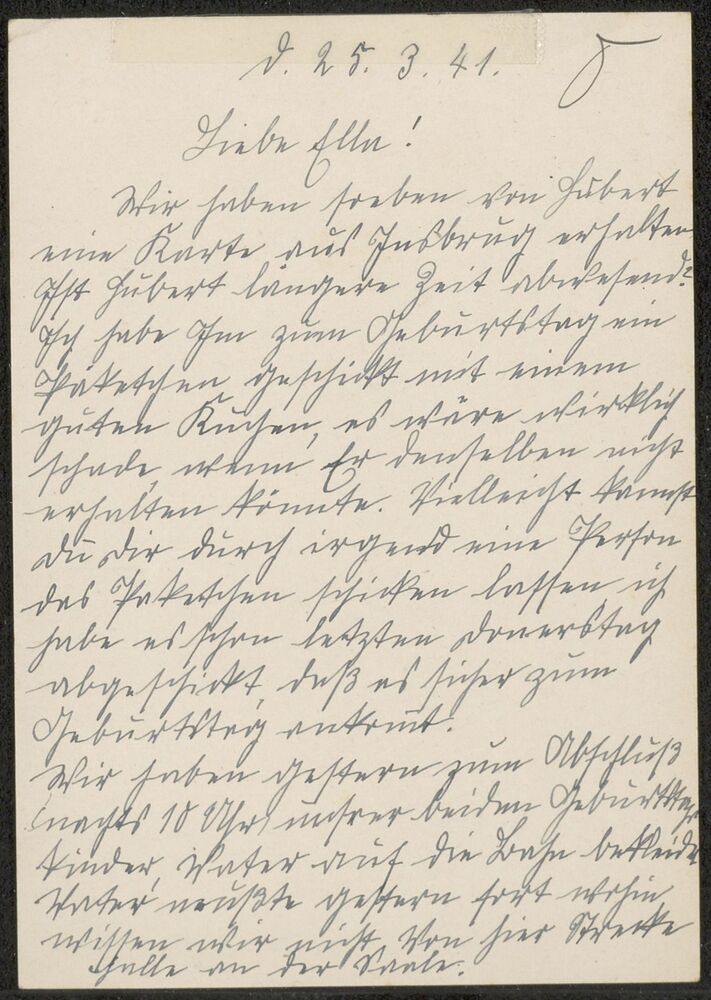 d. 25. 3. 41.
Liebe Ella!
Wir haben soeben von Hubert
eine Karte aus Insbrug erhalten
Ist Hubert längere Zeit abwesend?
Ich habe Ihm zum Geburtstag ein
Päketchen geschickt mit einem
guten Kuchen, es wäre wirklich
schade, wenn Er denselben nicht
erhalten könnte. Vielleicht kannst
Du Dir durch irgend eine Person
das Paketchen schicken lassen, ich
habe es schon letzten Donerstag
abgeschickt, daß es sicher zum
Geburtstag ankomt.
Wir haben gestern zum Abschluß
(nachts 10 Uhr) unsrer beiden Geburtstags
kinder, Vater auf die Bahn
Vater mußte gestern fort wohin
wissen wir nicht, Von hier Strecke
Halle an der Saale.